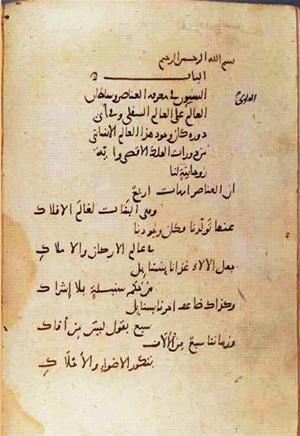 بسم الله الرحمن الرحيم
الباب
الستون في معرفة العناصر وسلطان
العالم على العالم السفلي وفي أي
دورة كان وجود هذا العالم الانساني
من دورات الفلك الاقصى واية
روحانية لنا
ان العناصر امهات اربع
وهي البنات لعالم الافلاك
عنها تولدنا وكان وجودنا
في عالم الاركان والاملاك
جعل الاله غذانا بسنابل
من حكم سنبلة بلا اشراك
وكذاك ضاعف اجرنا بسنابل
سبع بقول ليس من افاك
وزماننا سبع من الالاف
بتكور الاضواء والاحلاك